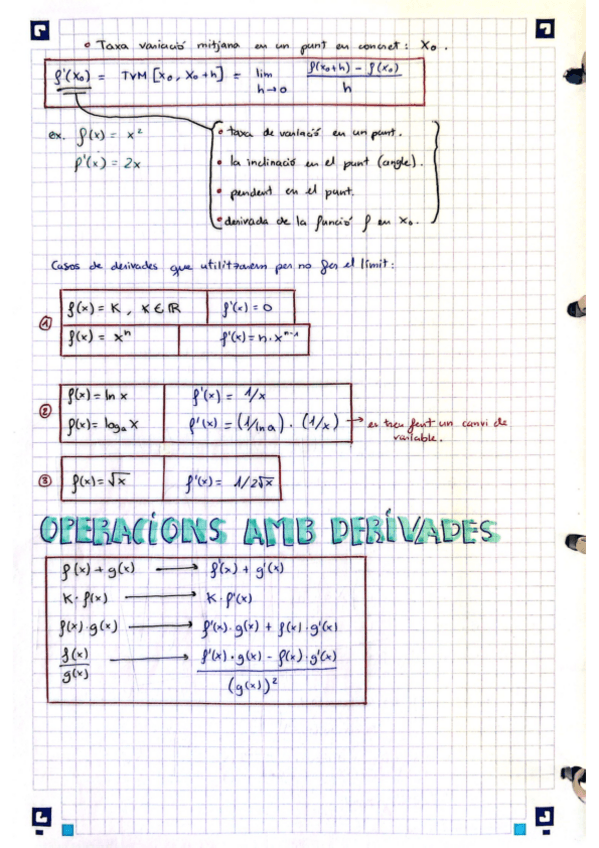 • Taxa variació mitjana en un punt en concret: x₀.
f'(x₀) = TVM [x₀, x₀+h] = lim h→0 f(x₀+h) - f(x₀) / h
ex. f(x) = x²
f'(x) = 2x
• taxa de variació en un punt.
• la inclinació en el punt (angle).
• pendent en el punt.
• derivada de la funció f en x₀.
Casos de derivades que utilitzarem per no fer el límit:
① f(x) = K, K ∈ ℝ f'(x) = 0
f(x) = xⁿ f'(x) = n·xⁿ⁻¹
② f(x) = ln x f'(x) = 1/x
f(x) = logₐ x f'(x) = (1/ln a) · (1/x) → es treu fent un canvi de
variable.
③ f(x) = √x f'(x) = 1/2√x
OPERACIONS AMB DERIVADES
f(x) + g(x) → f'(x) + g'(x)
K · f(x) → K · f'(x)
f(x) · g(x) → f'(x) · g(x) + f(x) · g'(x)
f(x) / g(x) → f'(x) · g(x) - f(x) · g'(x) / (g(x))²